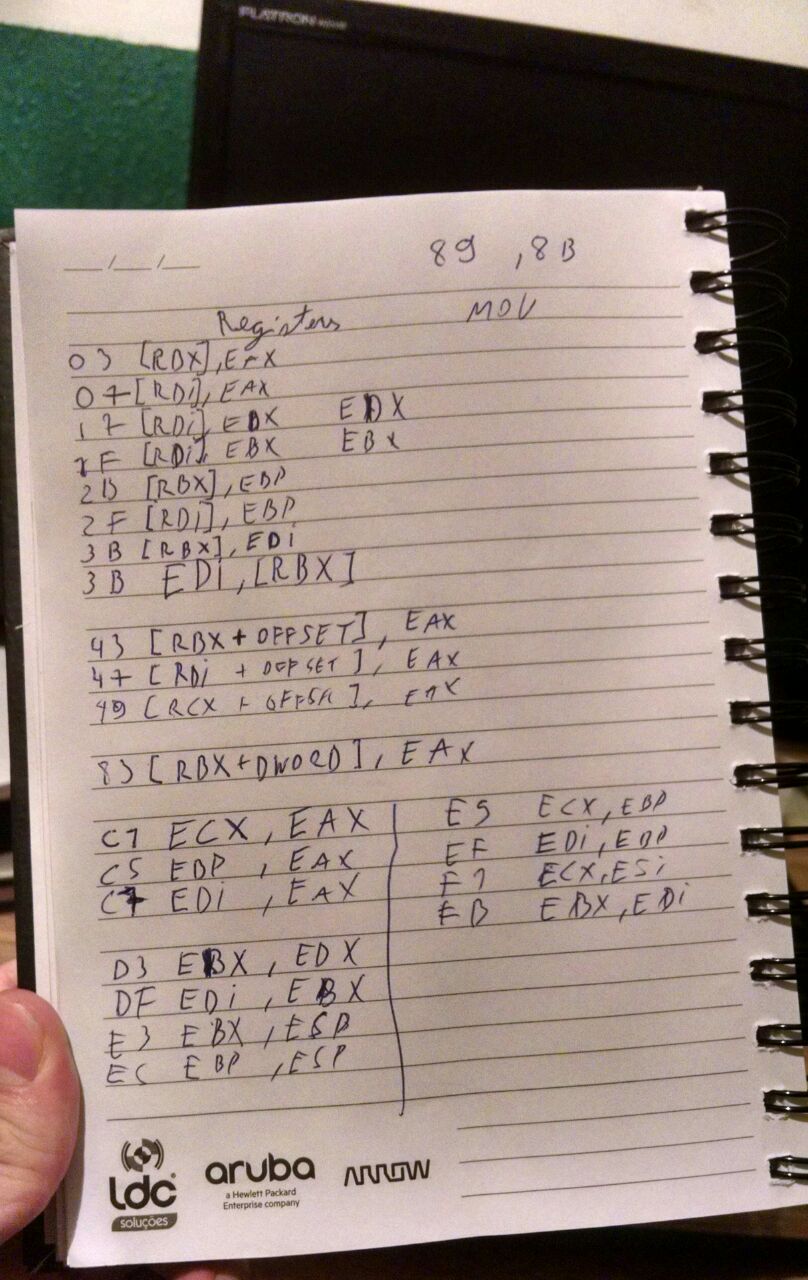 FLATRON
__/__/__
89 , 8B
Registers MOV
03 [RBX], EAX
07 [RDi], EAX
17 [RDi], EDX EDX
1F [RDi], EBX EBX
2B [RBX], EBP
2F [RDi], EBP
3B [RBX], EDi
3B EDi, [RBX]
43 [RBX + OFFSET], EAX
47 [RDi + OFFSET], EAX
49 [RCX + OFFSET], EAX
83 [RBX+DWORD], EAX
C1 ECX, EAX
C5 EBP, EAX
C7 EDi, EAX
D3 EBX, EDX
DF EDi, EBX
E3 EBX, ESP
EC EBP, ESP
E9 ECX, EBP
EF EDi, EBP
F1 ECX, ESi
FB EBX, EDi
ldc
soluções
aruba
a Hewlett Packard
Enterprise company
ARROW